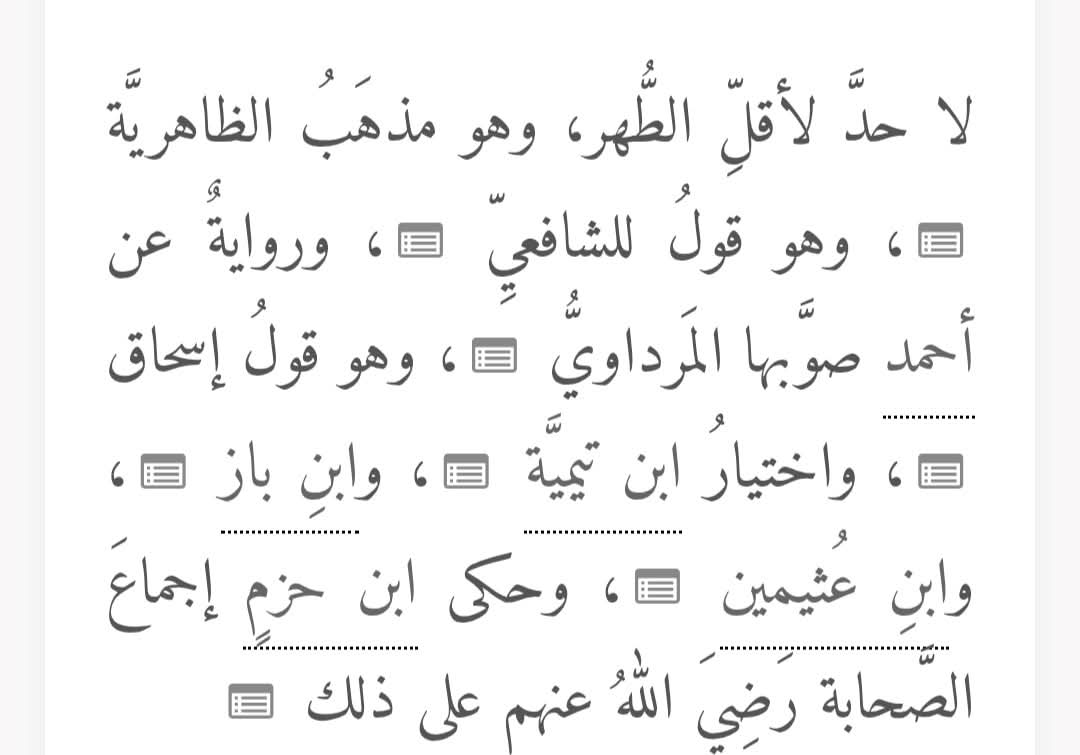 لا حدَّ لأقلِّ الطُّهر، وهو مذهَبُ الظاهريَّة
، وهو قولُ للشافعيِّ ، وروايةٌ عن
أحمد صوَّبها المَرداويُّ ، وهو قولُ إسحاق
، واختيارُ ابن تيميَّة ، وابنِ باز ،
وابنِ عُثيمين ، وحكى ابن حزمٍ إجماعَ
الصَّحابة رَضِيَ اللهُ عنهم على ذلك